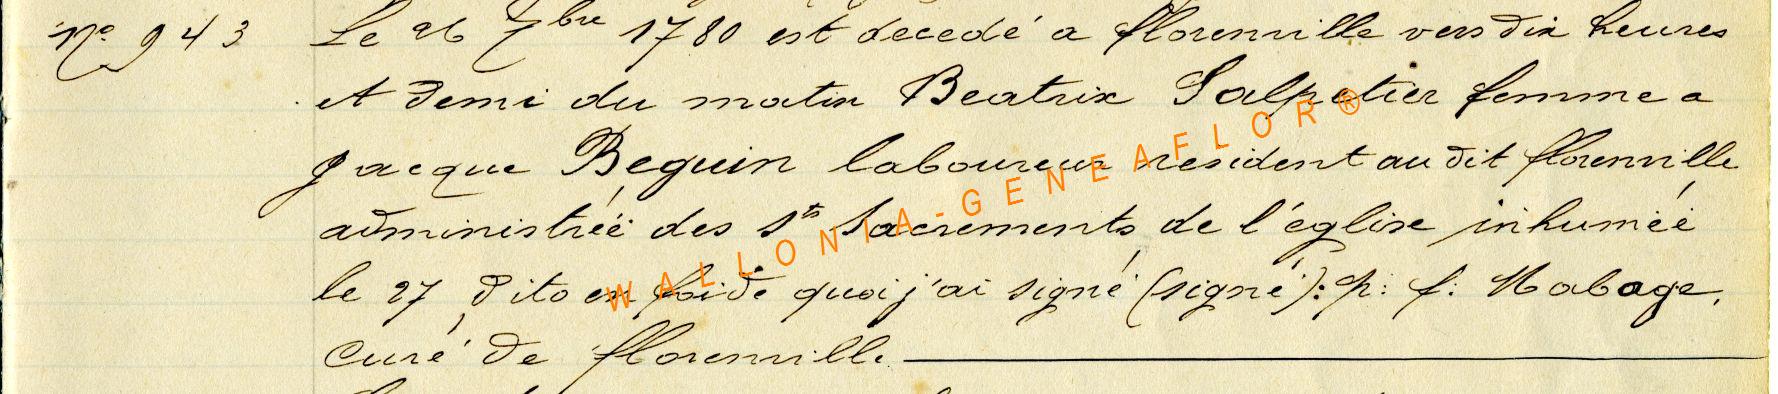 N° 943 Le 26 7bre 1780 est decedé a florenville vers dix heures
et demi du matin Beatrix Salpetier femme a
jacque Beguin laboureur resident au dit florenville
administréé des Sts Sacrements de l'église inhuméé
le 27 dito en foi de quoi j'ai signé (signé): p: f: Mabage,
curé de florenville
WALLONIA-GENEAFLOR®